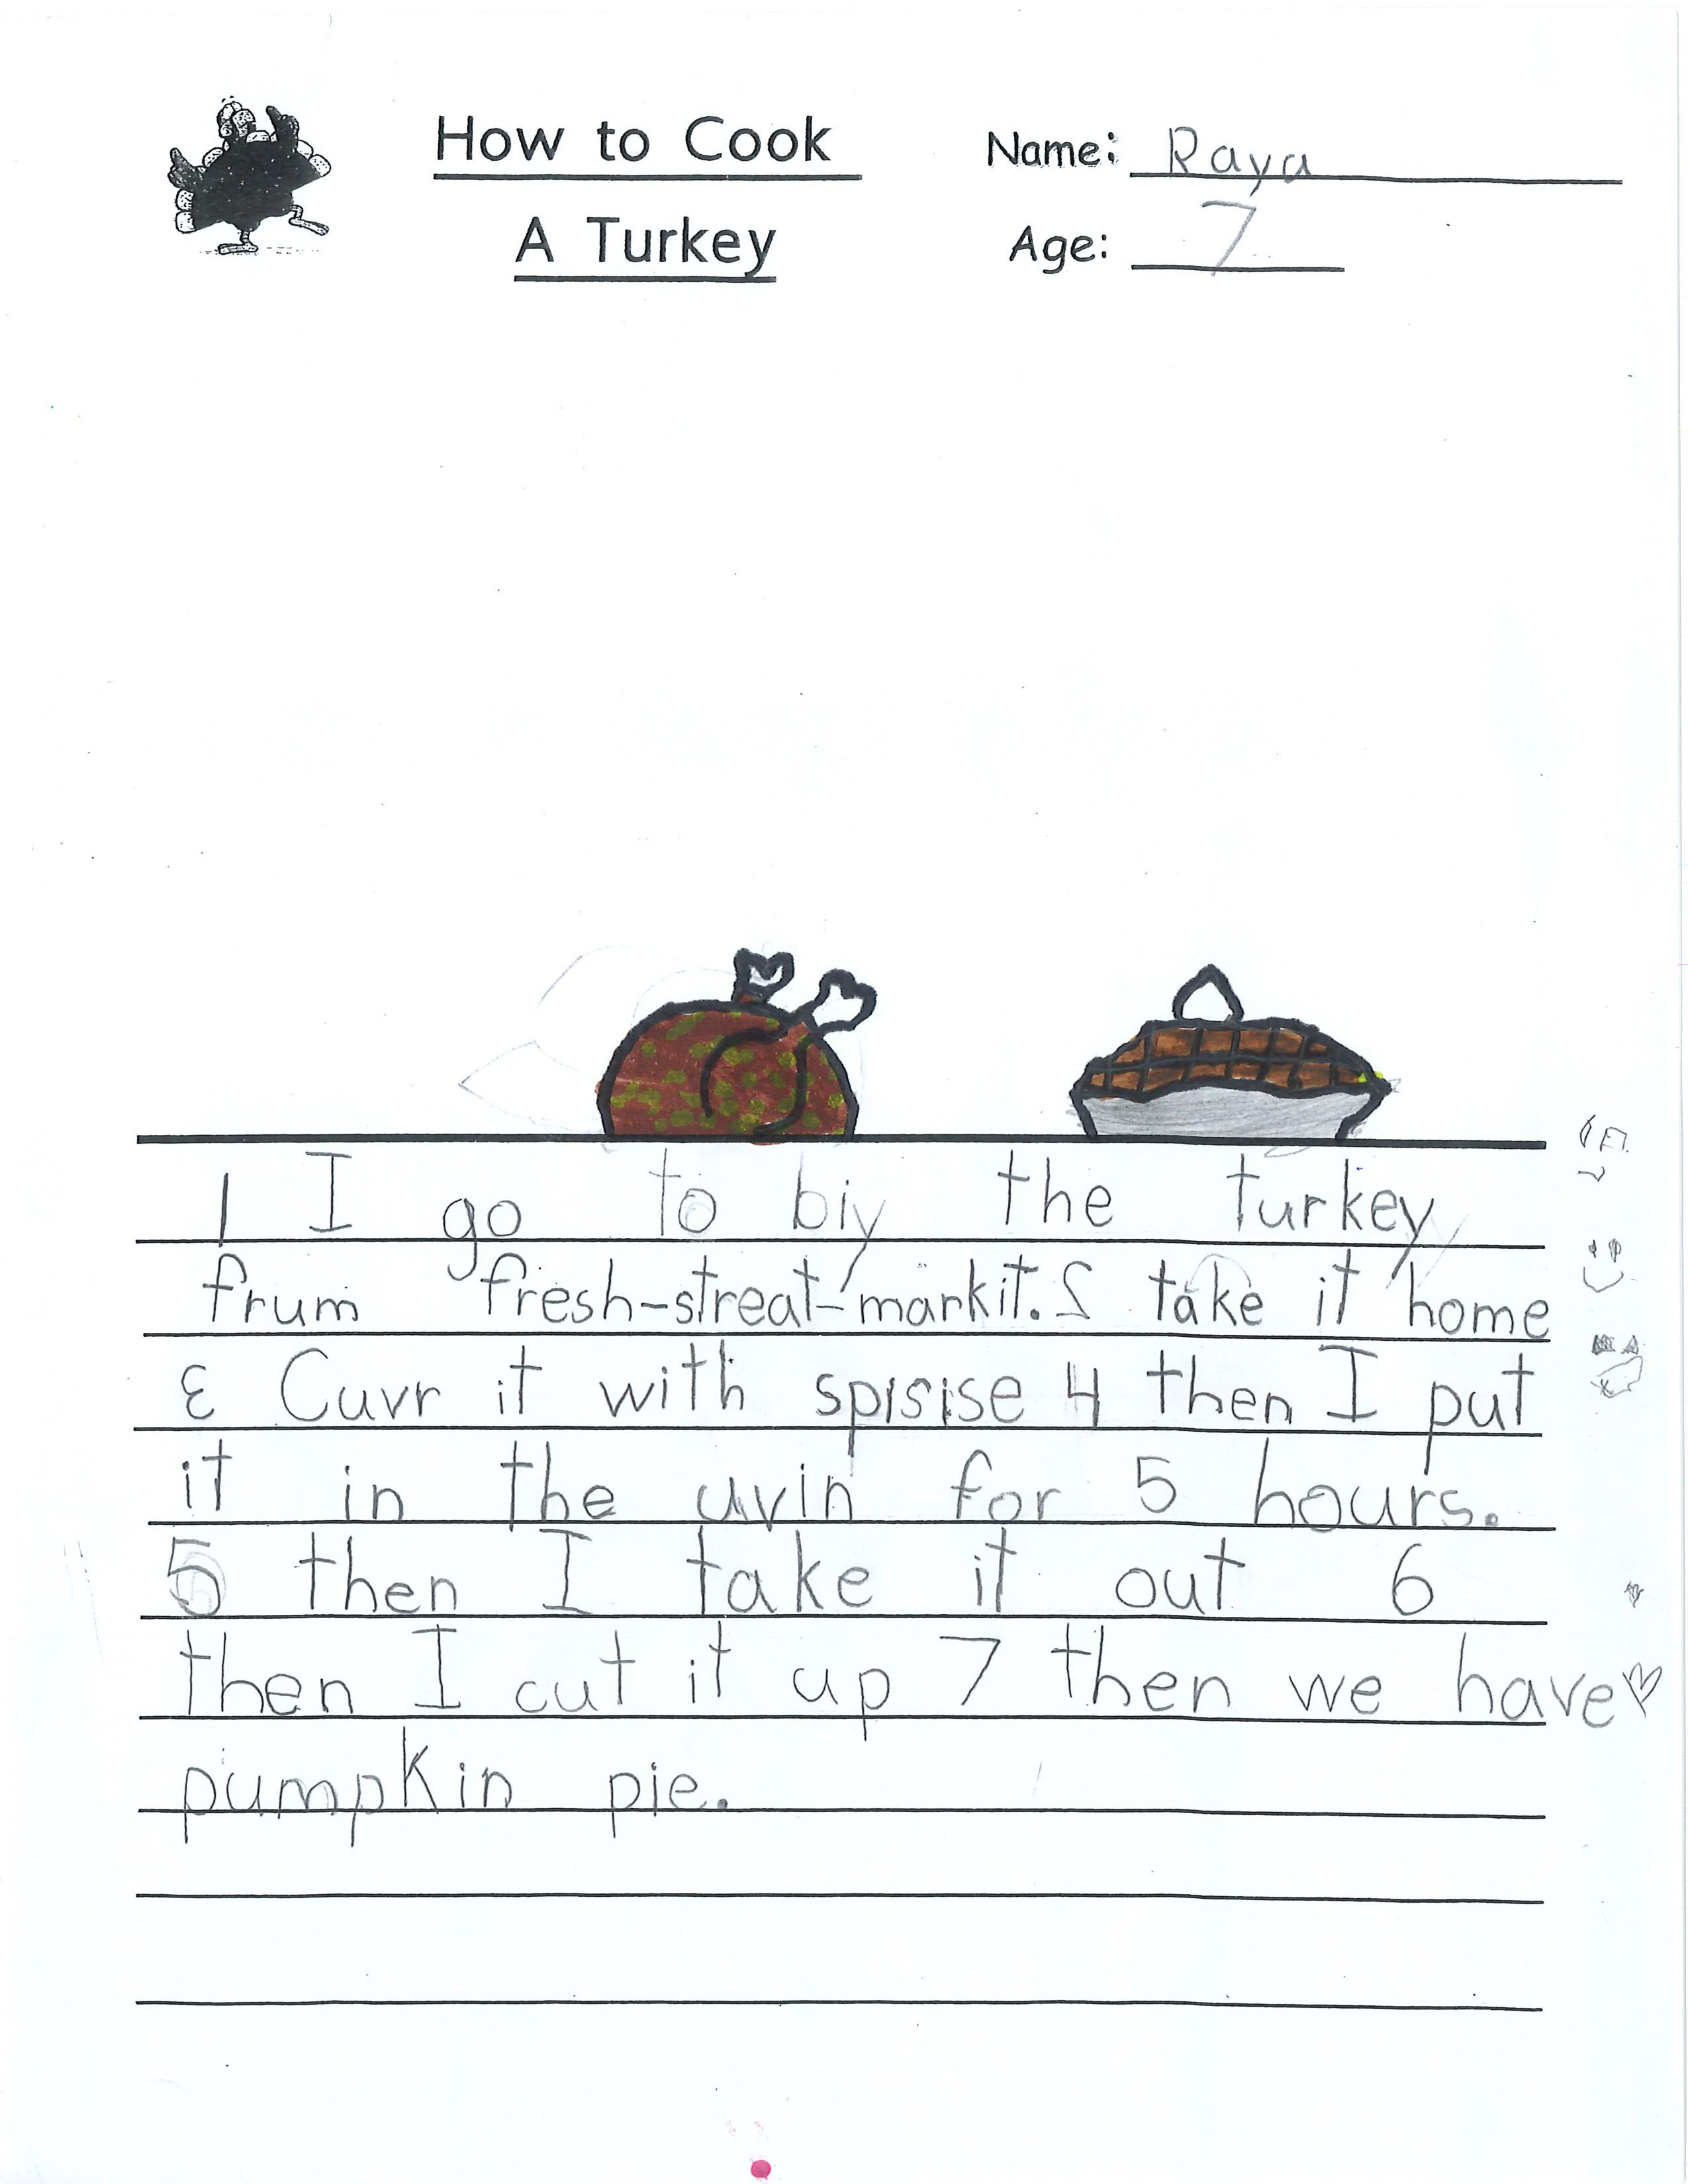 How to Cook
A Turkey
Name: Raya
Age: 7
1 I go to biy the turkey
frum fresh-streat-markit. 2 take it home
3 Cuvr it with spisise 4 then I put
it in the uvin for 5 hours.
5 then I take it out 6
then I cut it up 7 then we have
pumpkin pie.